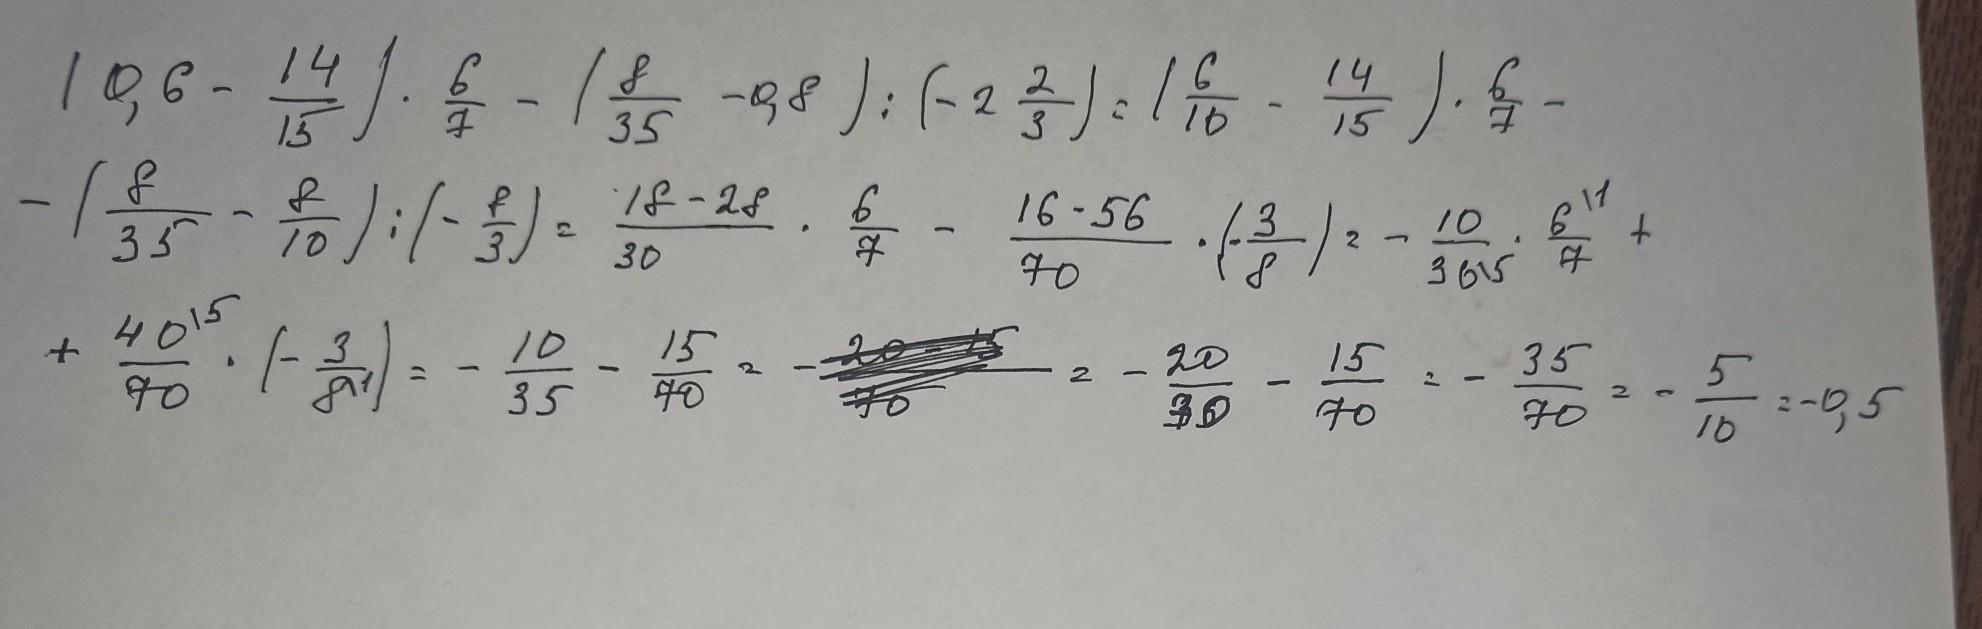 (0,6 - 14/15) · 6/7 - (8/35 - 0,8) : (-2 2/3) = (6/10 - 14/15) · 6/7 -
- (8/35 - 8/10) : (- 8/3) = 18-28/30 · 6/7 - 16-56/70 · (-3/8) = - 10/30\5 · 6\1/7 +
+ 40\5/70 · (- 3/8\1) = - 10/35 - 15/70 = - = - 20/70 - 15/70 = - 35/70 = - 5/10 = -0,5